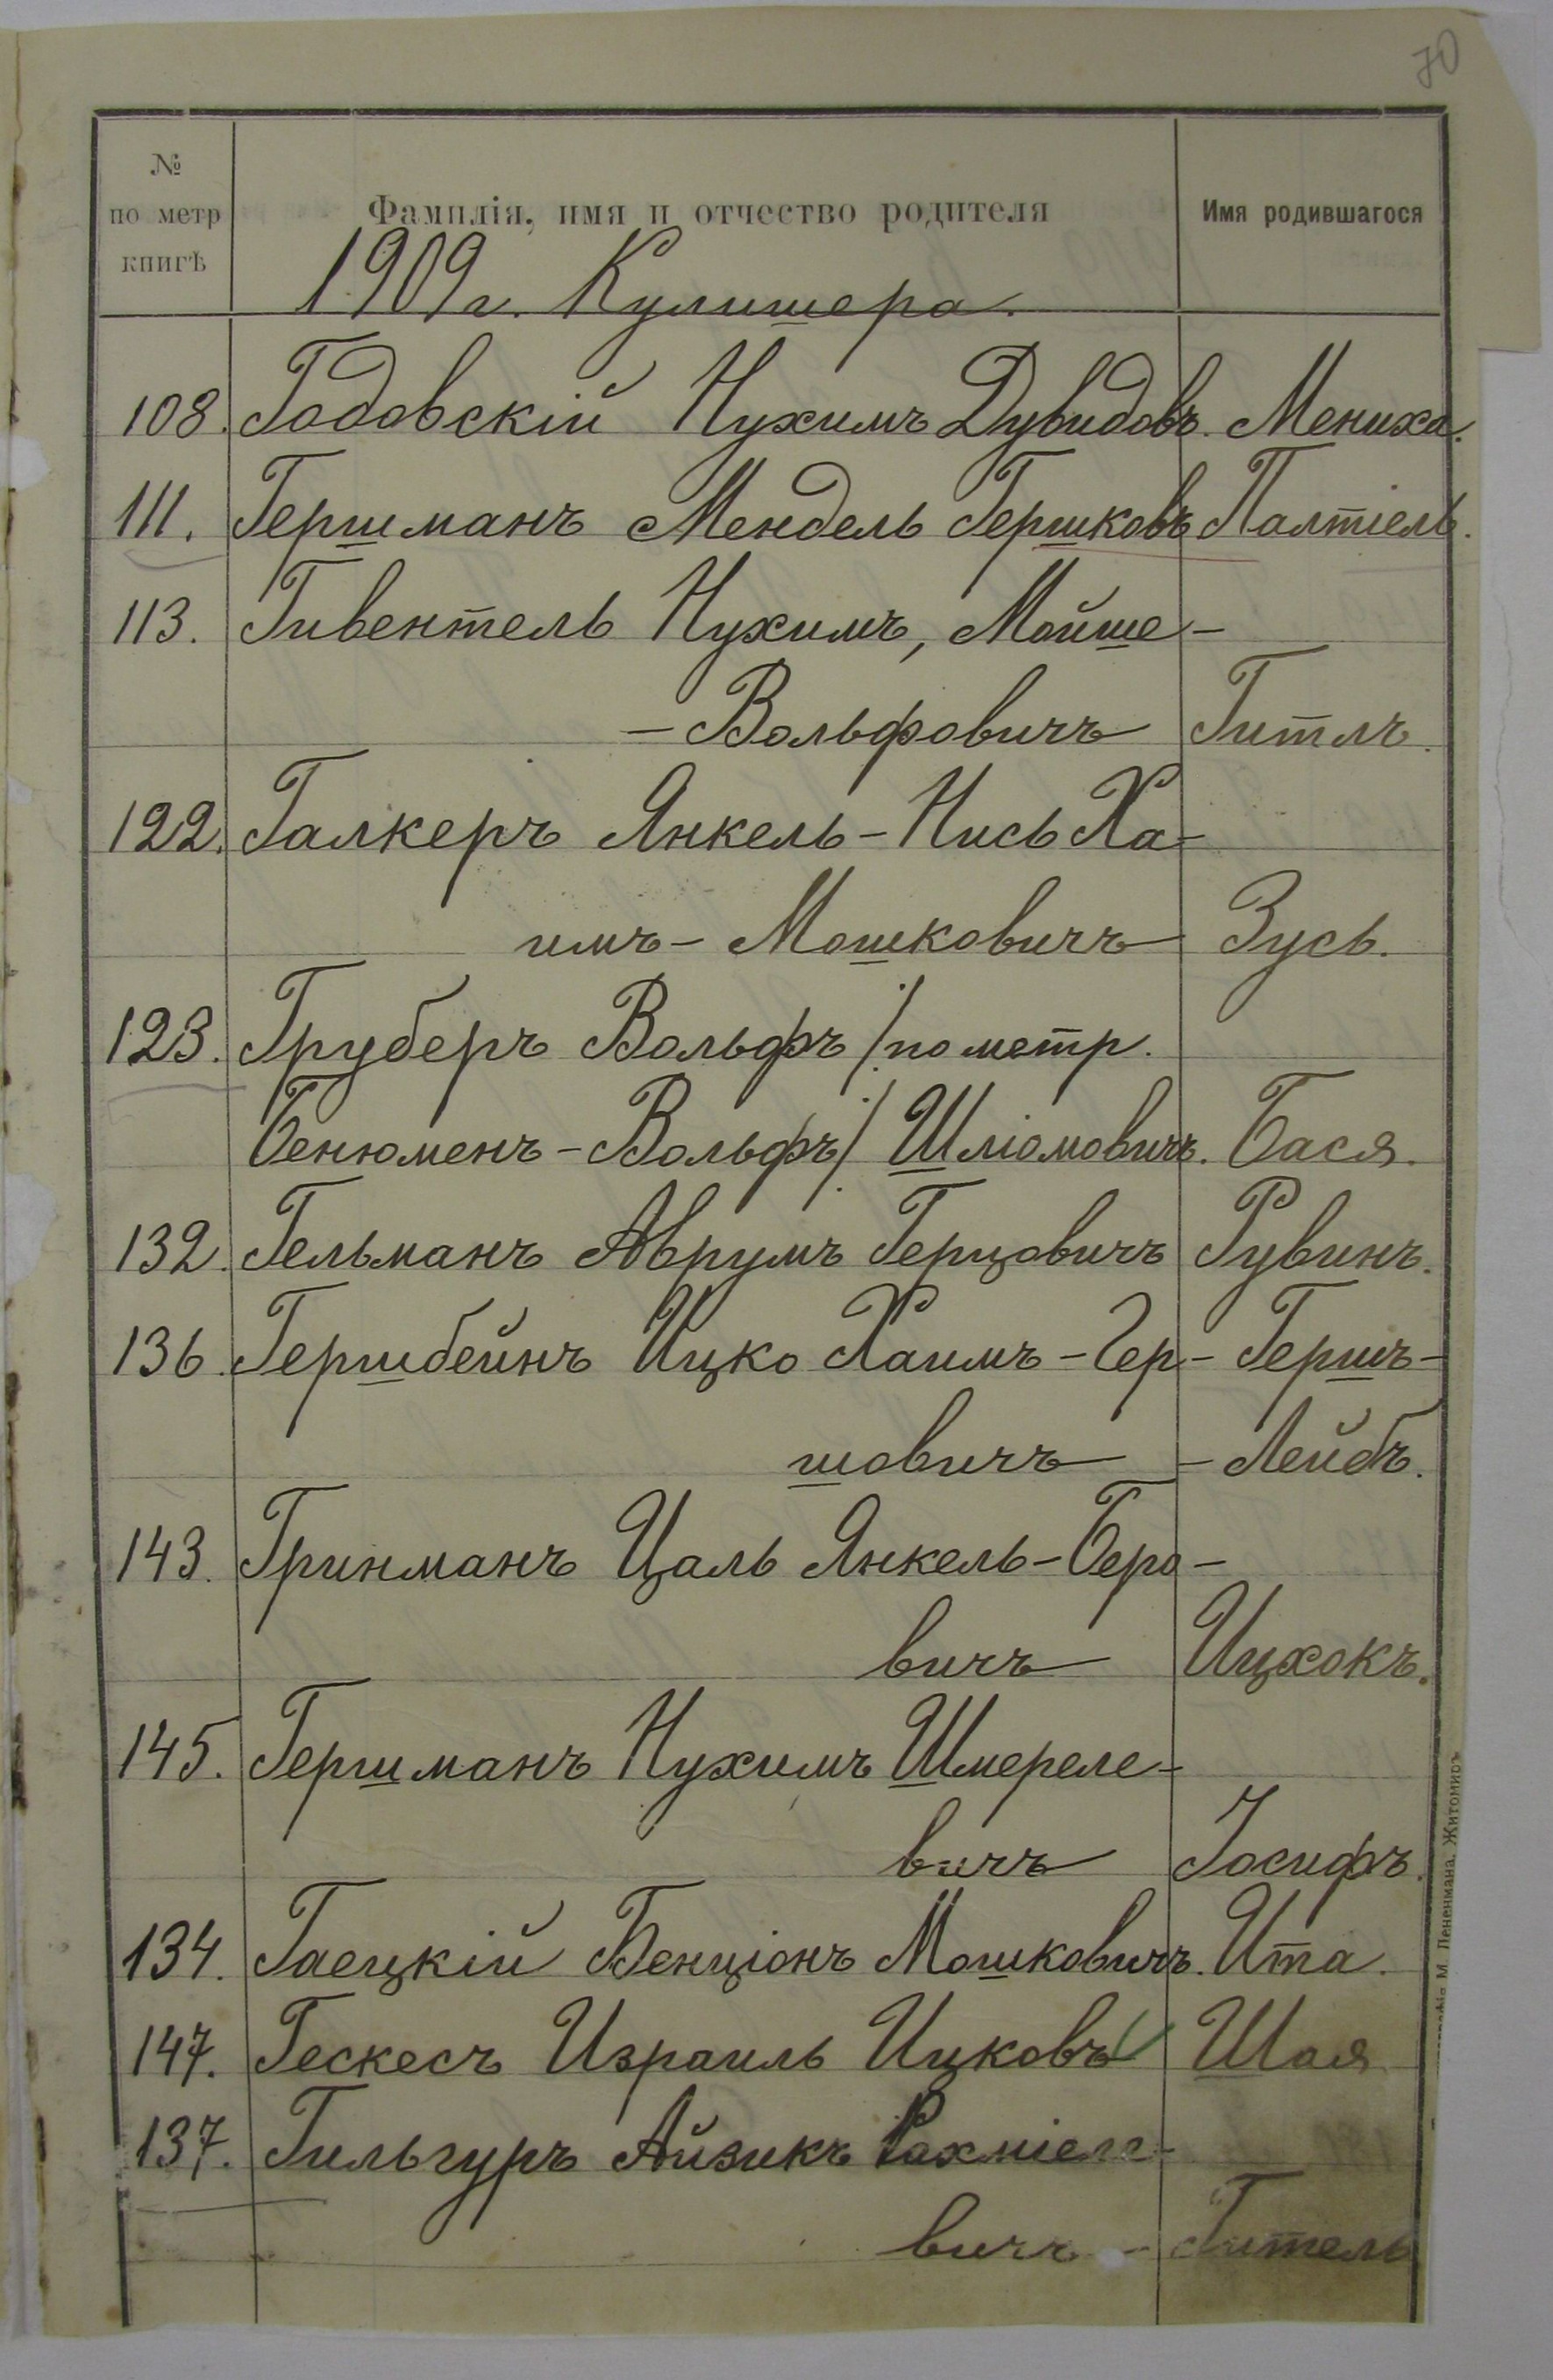 70
№ по метр книгѣ
Фамилія, имя и отчество родителя
Имя родившагося
1909 г. Кулишера.
108. Годовскій Нухимъ Дувидовъ. Мениха.
111. Гершманъ Мендель Гершковъ Палтіель.
113. Гивентель Нухимъ, Мойше-
-Вольфовичъ Гитлъ.
122. Галкеръ Янкель-Нись Ха-
имъ-Мошковичъ Зусь.
123. Груберъ Вольфъ /по метр.
Бенюменъ-Вольфъ/ Шліомовичъ. Бася.
132. Гельманъ Аврумъ Герцовичъ Рувинъ.
136. Гершбейнъ Ицко Хаимъ-Гер- Гершъ-
шовичъ -Лейбъ.
143. Гринманъ Цаль Янкель-Беро-
вичъ Ицхокъ.
145. Гершманъ Нухимъ Шмереле-
вичъ Іосифъ.
134. Гаецкій Бенціонъ Мошковичъ. Ита.
147. Гескесъ Израиль Ицковъ Шая
137. Гильгуръ Айзикъ Рахміеле-
вичъ - Гитель
М. Лененмана. Житомиръ